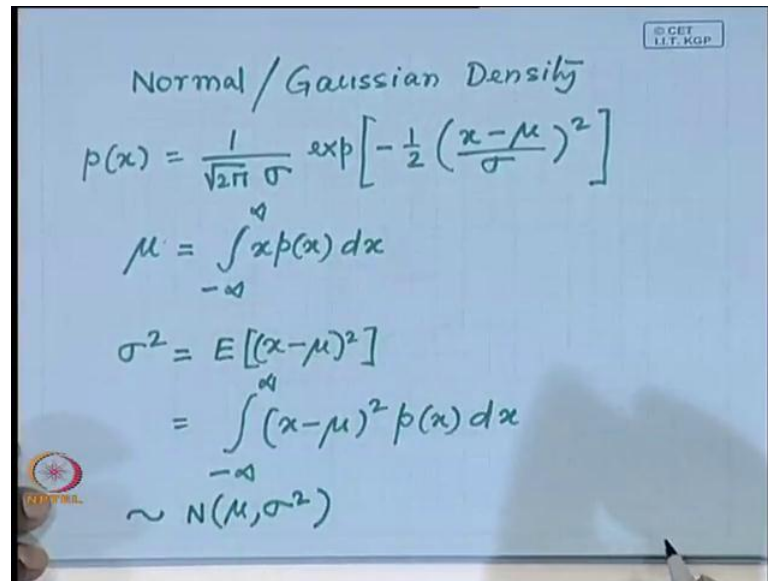 © CET
I.I.T. KGP
Normal / Gaussian Density
p(x) = 1/(√2π σ) exp[-1/2 ((x-μ)/σ)²]
μ = ∫_{-∞}^{∞} x p(x) dx
σ² = E[(x-μ)²]
= ∫_{-∞}^{∞} (x-μ)² p(x) dx
NPTEL
~ N(μ,σ²)